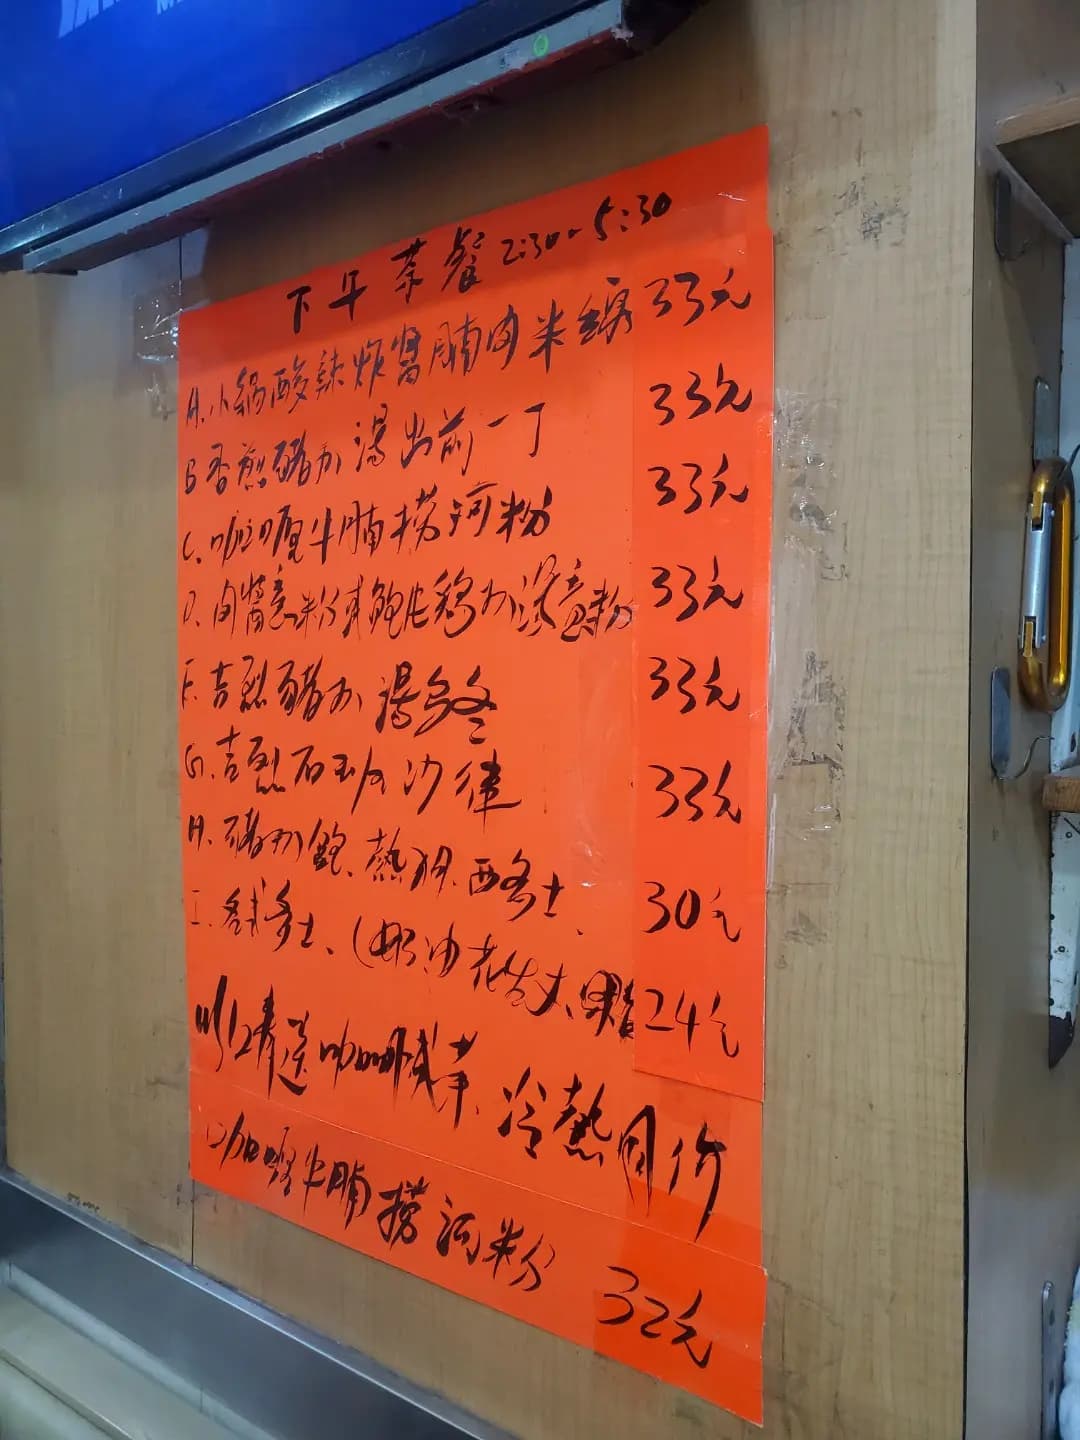 下午茶餐 2:30-5:30
A.小鍋酸辣炸醬腩肉米線 33元
B香煎豬扒湯出前一丁 33元
C.咖喱牛腩撈河粉 33元
D.肉醬意粉或鮑片雞扒湯意粉 33元
F.吉烈豬扒湯烏冬 33元
G.吉烈石班沙律 33元
H.豬扒飽、熱狗.西多士、 30元
I.各式多士、(奶油花生 24元
以上精送咖啡或茶、冷熱同价
咖喱牛腩撈河粉 32元